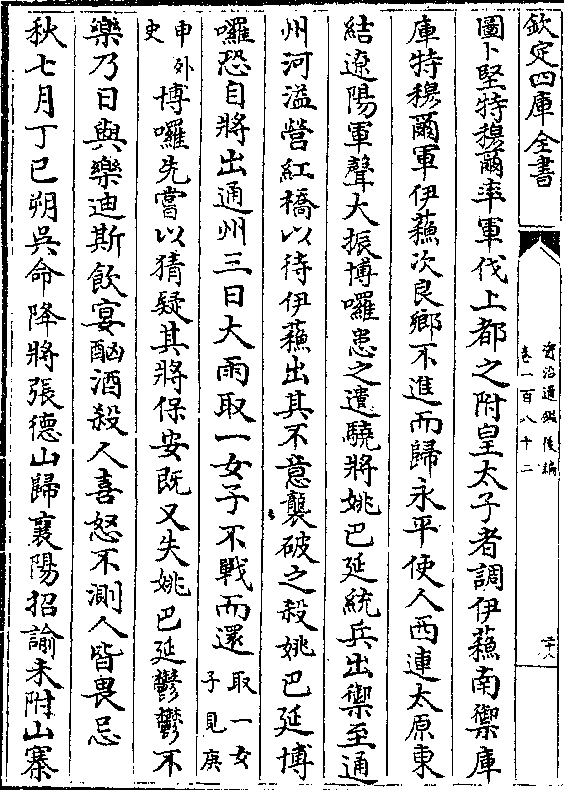 欽定四庫全書
資治通鑑後編
卷一百八十二
圖卜堅特穆爾率軍伐上都之附皇太子者調伊蘓南禦庫
庫特穆爾軍伊蘓次良鄉不進而歸永平使人西連太原東
結遼陽軍聲大振博囉患之遣驍將姚巴延統兵出禦至通
州河溢營紅橋以待伊蘓出其不意襲破之殺姚巴延博
囉恐自將出通州三日大雨取一女子不戰而還取一女子見庚
申外史博囉先嘗以猜疑其將保安既又失姚巴延鬱鬱不
樂乃日與樂迪斯飲宴酗酒殺人喜怒不測人皆畏忌
秋七月丁巳朔吳命降將張德山歸襄陽招諭未附山寨